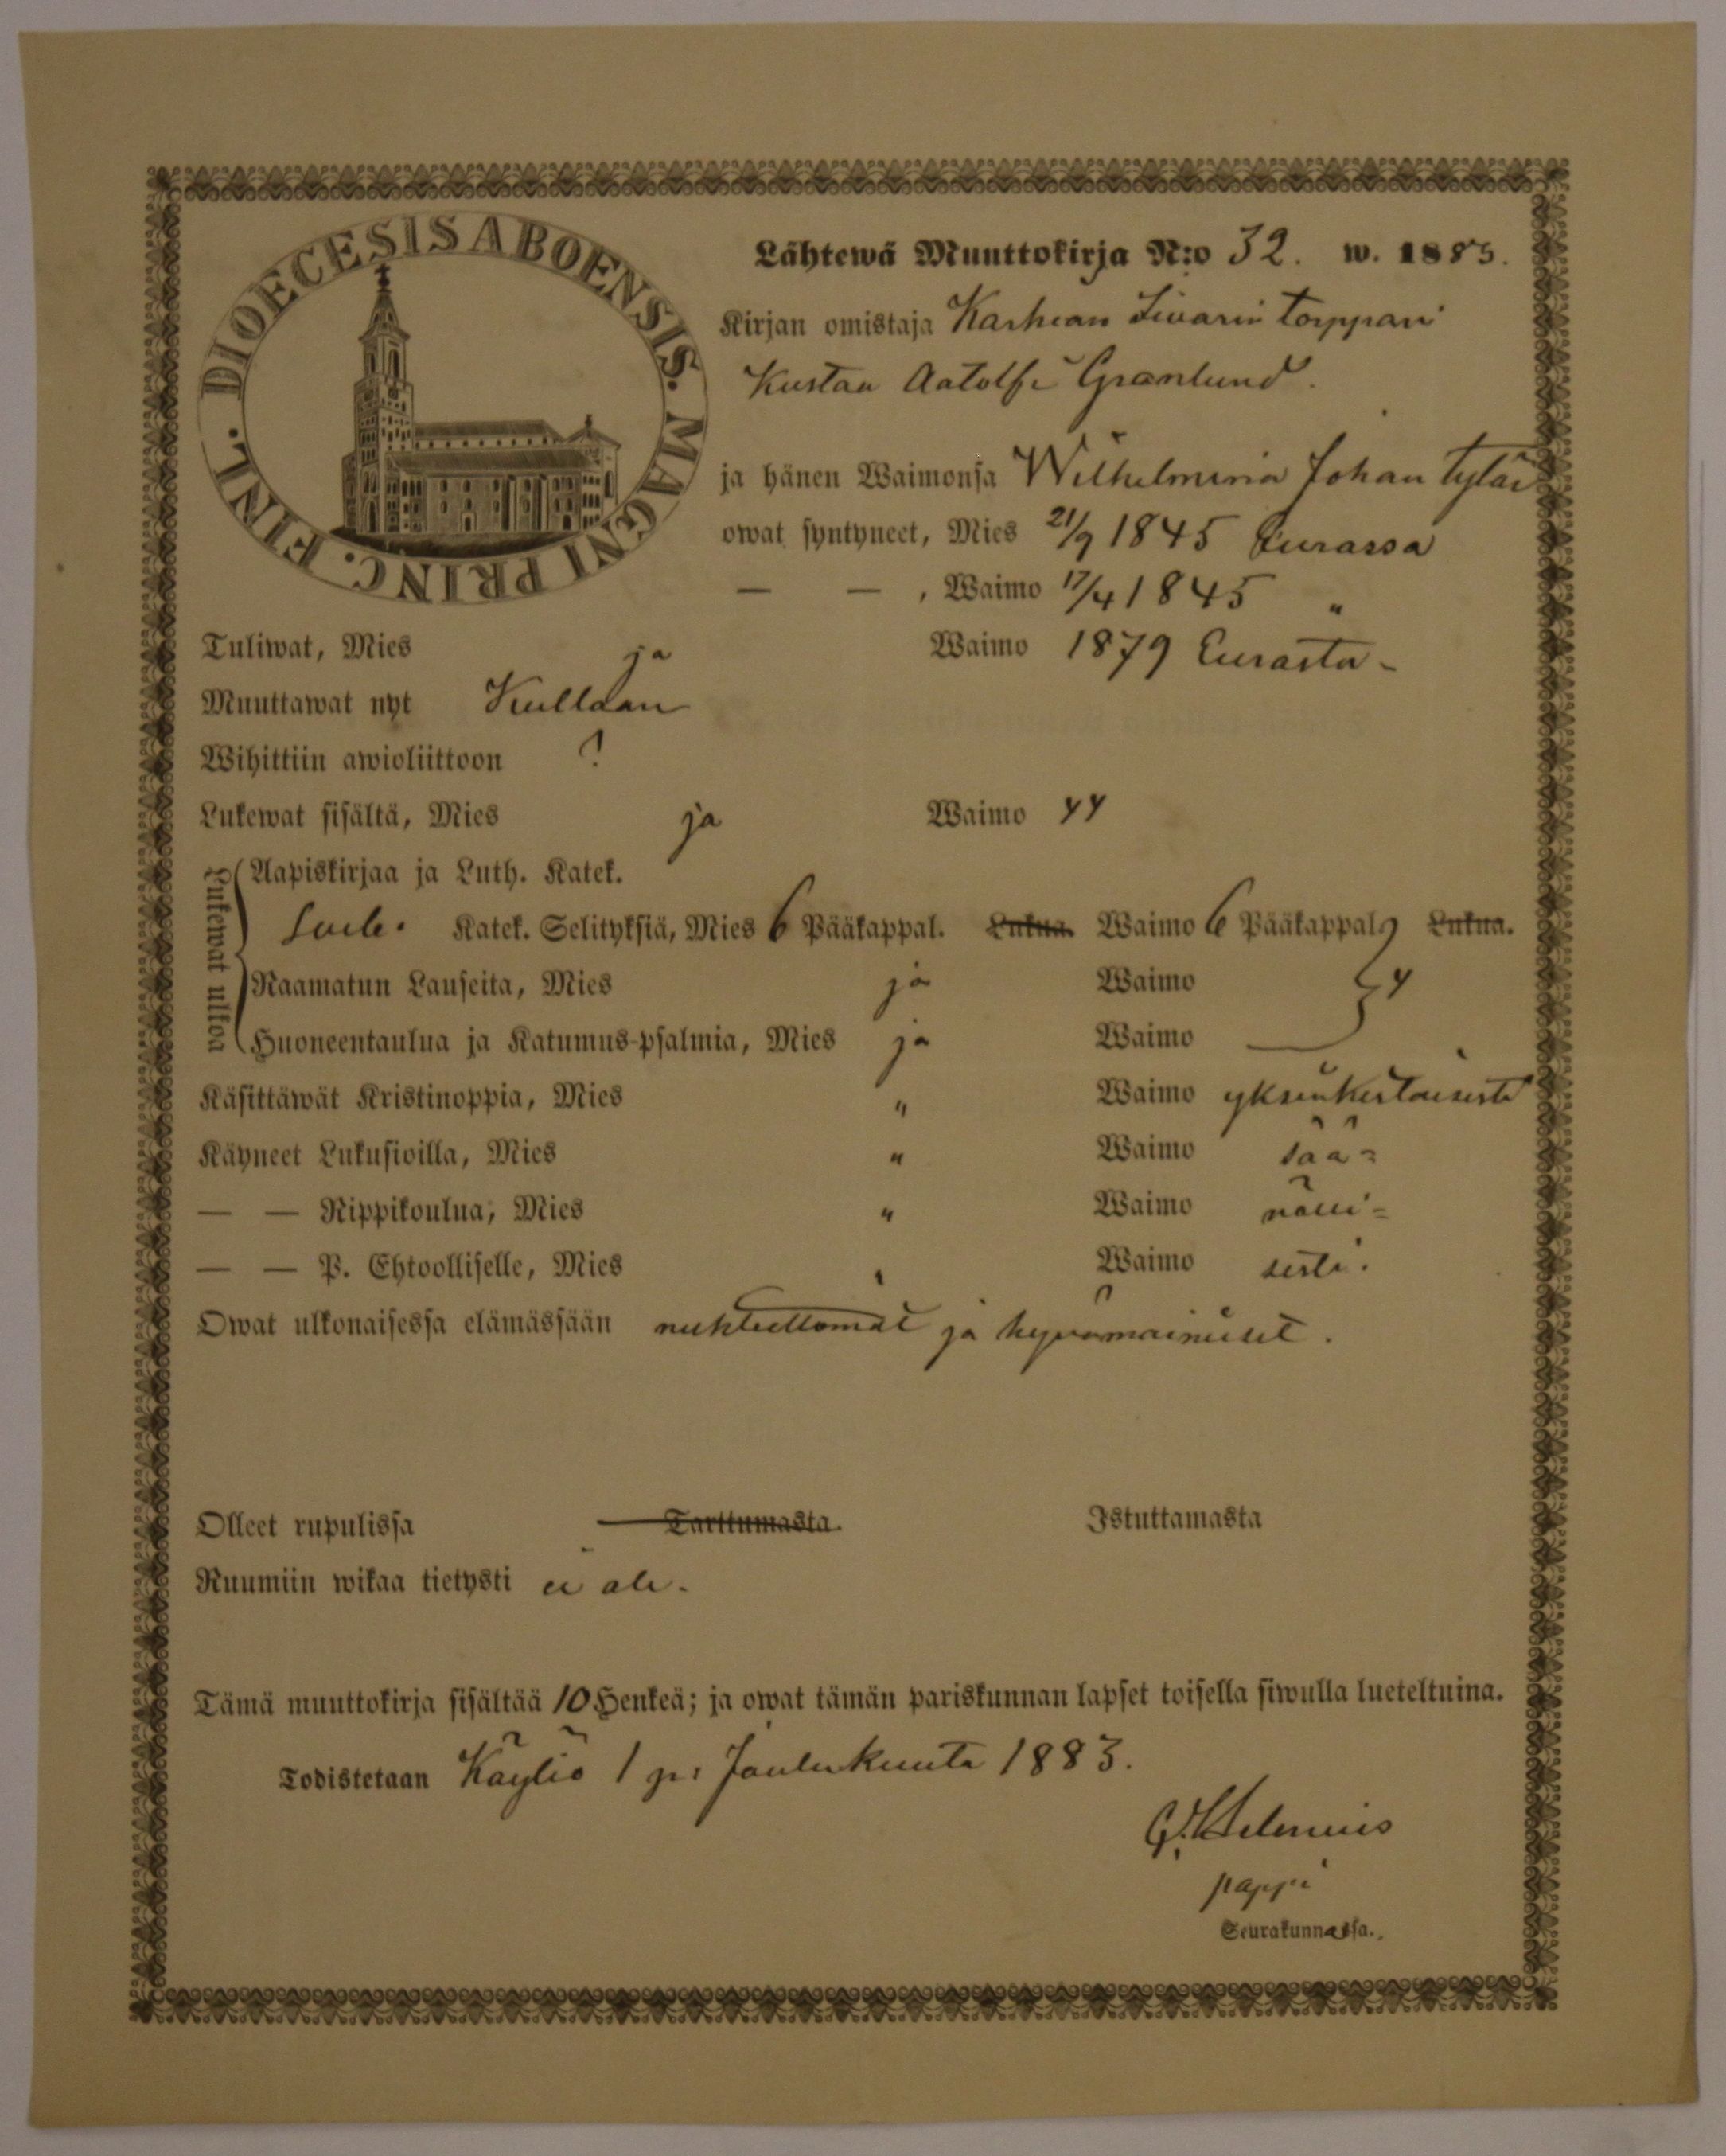 DIOECESIS ABOENSIS. MAGNI PRINC. FINL.
Lähtewä Muuttokirja N:o 32. w. 1883.
Kirjan omistaja Karhian Iivarin torppari
Kustaa Aatolfi Granlund.
ja hänen Waimonsa Wilhelmiina Johan tytär
owat syntyneet, Mies 21/9 1845 Eurassa
— — , Waimo 17/4 1845 "
Tuliwat, Mies ja Waimo 1879 Eurasta -
Muuttawat nyt Kullaan
Wihittiin awioliittoon ?
Lukewat sisältä, Mies ja Waimo 44
Lukewat ulkoa
Aapiskirjaa ja Luth. Katek.
Katek. Selityksiä, Mies 6 Pääkappal. Lukua. Waimo 6 Pääkappal. Lukua.
Raamatun Lauseita, Mies ja Waimo 4
Huoneentaulua ja Katumus-psalmia, Mies ja Waimo
Käsittäwät Kristinoppia, Mies " Waimo yksinkertaisesti
Käyneet Lukusioilla, Mies " Waimo sää=
— — Rippikoulua, Mies " Waimo nölli=
— — P. Ehtoolliselle, Mies " Waimo sesti.
Owat ulkonaisessa elämässään nuhteettomat ja hyvämainiset.
Olleet rupulissa Tarttumasta. Istuttamasta
Ruumiin wikaa tietysti ei ole.
Tämä muuttokirja sisältää 10 Henkeä; ja owat tämän pariskunnan lapset toisella siwulla lueteltuina.
Todistetaan Käyliö 1 p: Joulukuuta 1883.
G. Helenius
pappi
Seurakunnassa.